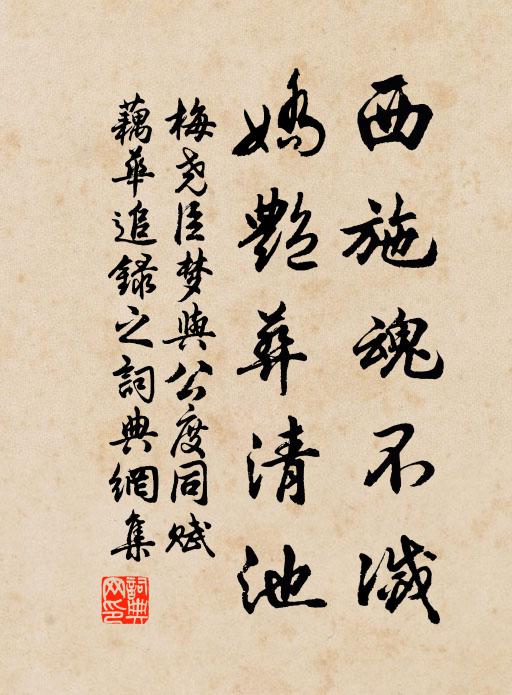 西施魂不滅
嬌艷葬清池
梅尧臣梦與公度同赋
藕華追録之詞典網集
詞典网印